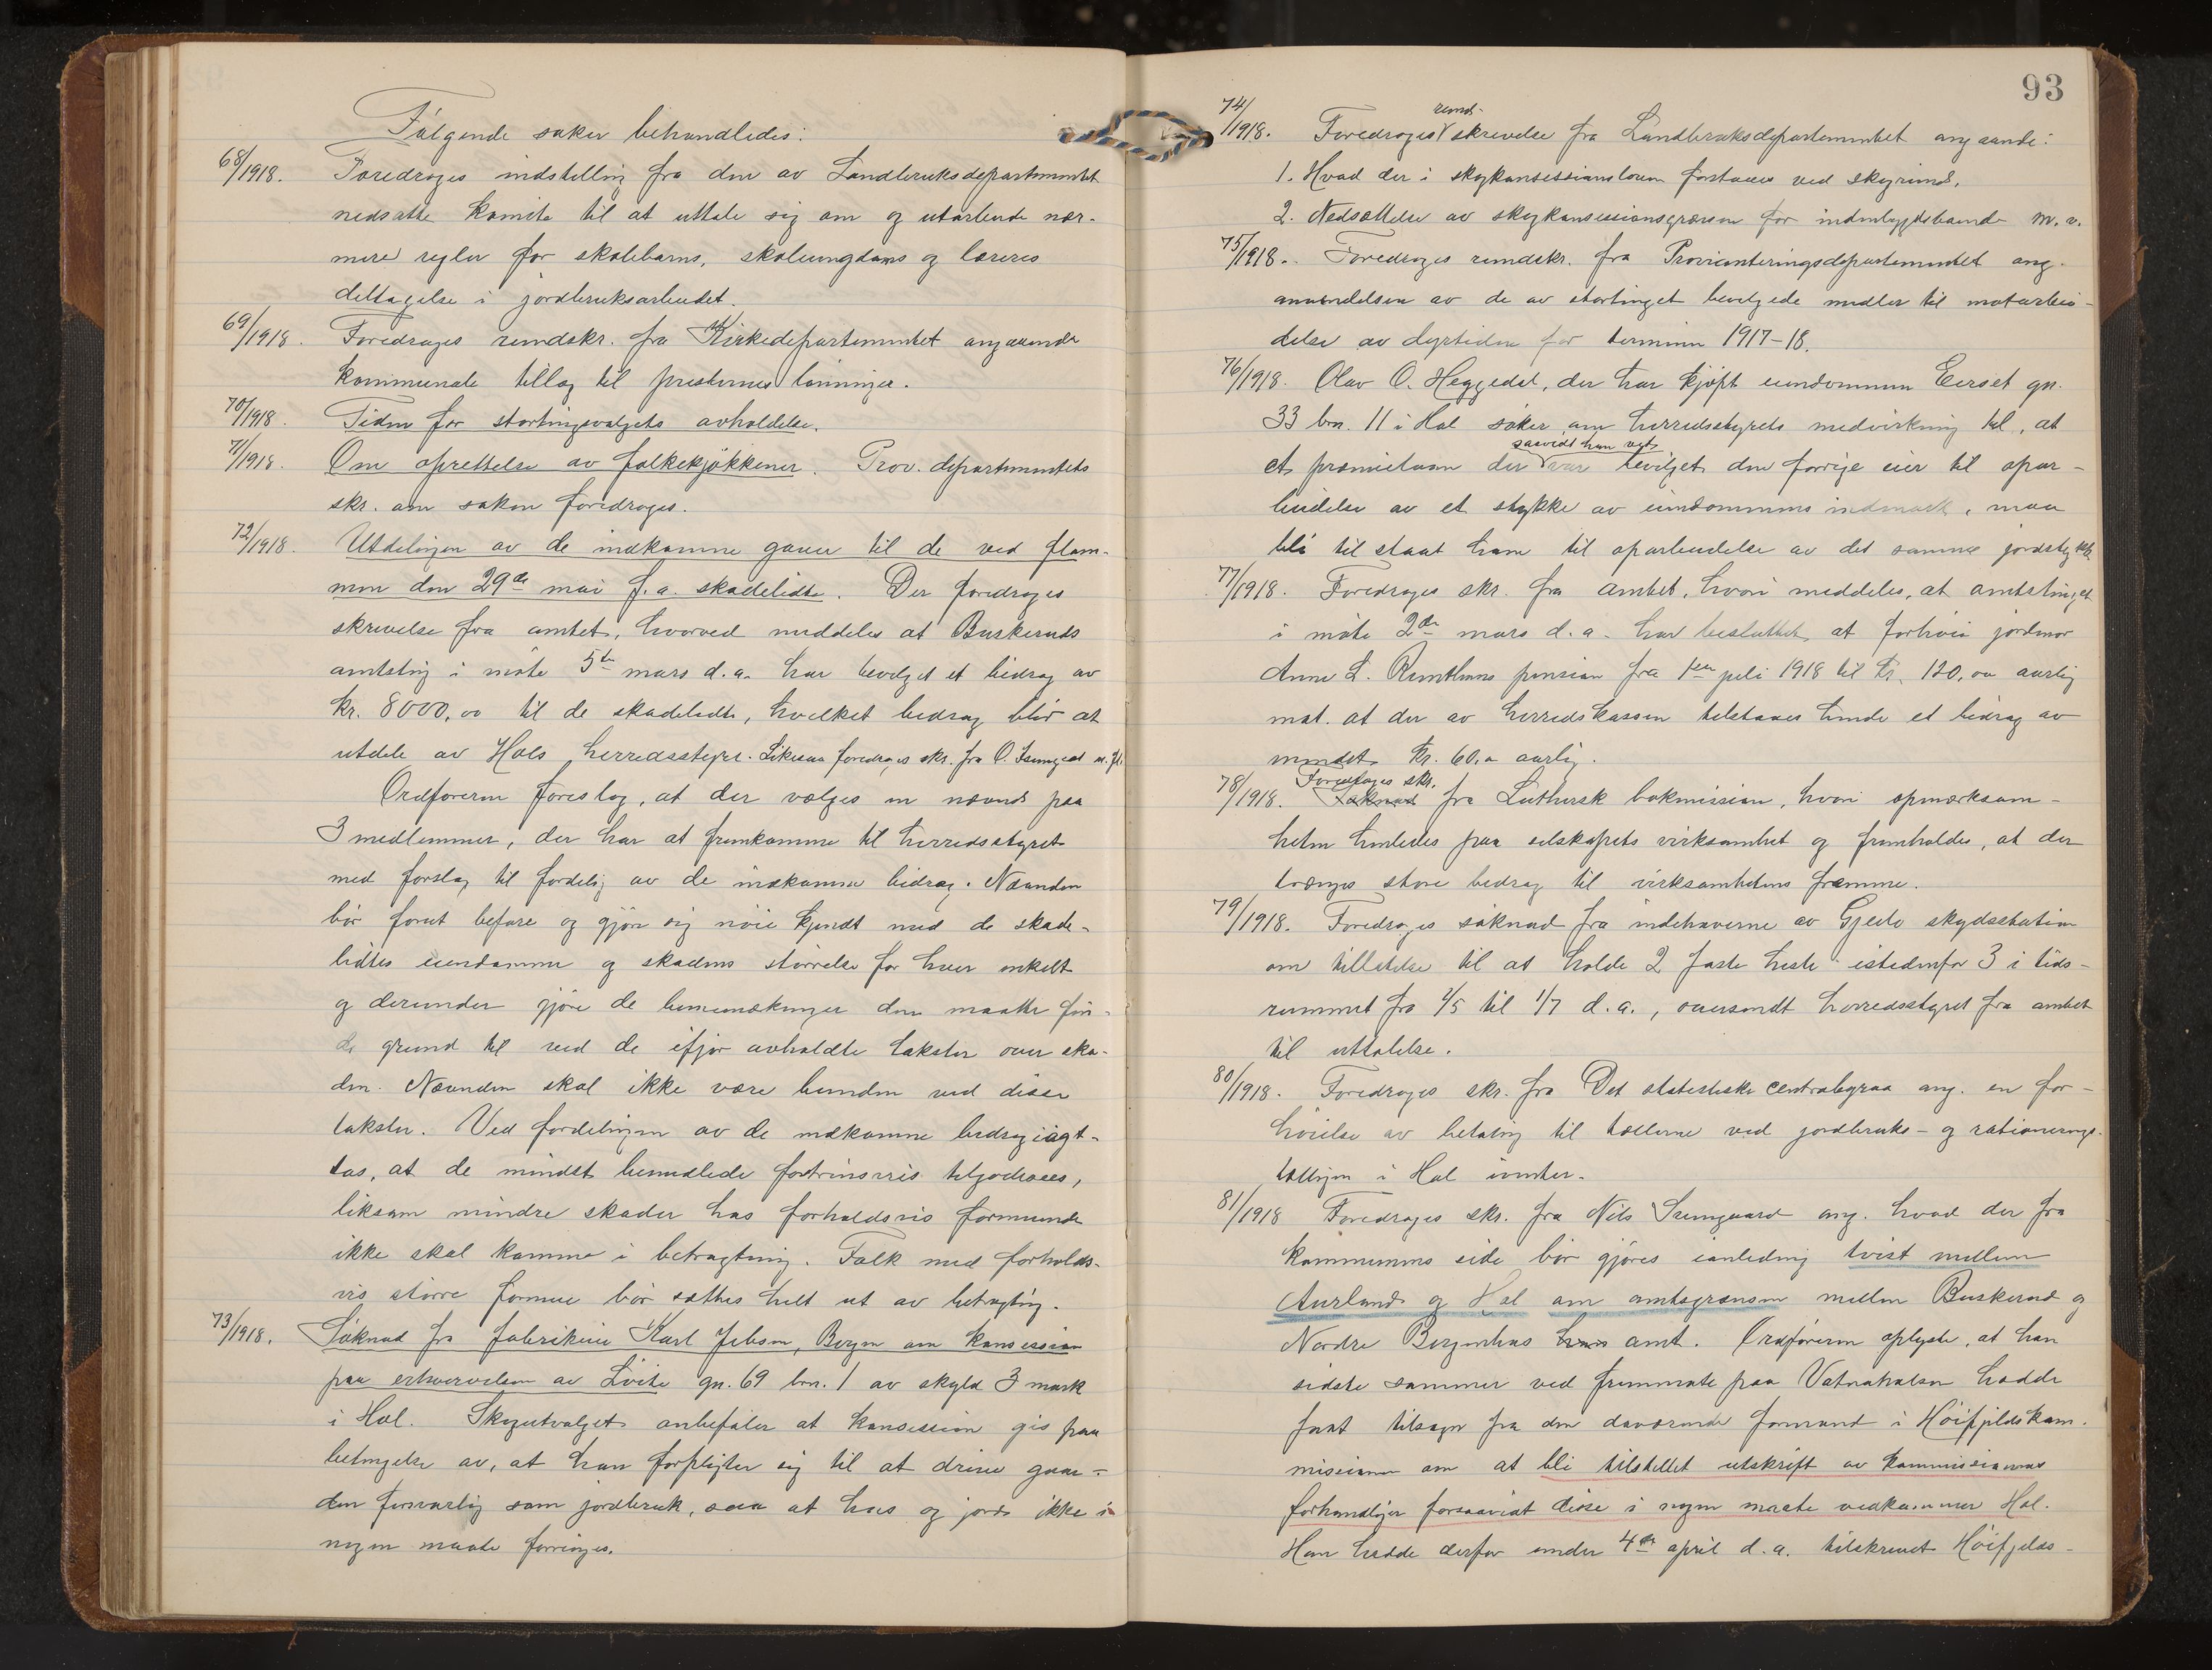 Følgende saker behandledes:
68/1918. Foredroges indstilling fra den av Landbruksdepartementet
nedsatte komite til at uttale sig om og utarbeide nær-
mere regler for skolebarns, skoleungdoms og læreres
deltagelse i jordbruksarbeidet.
69/1918. Foredroges rundskr. fra Kirkedepartementet angaaende
kommunale tillæg til presternes lønninger.
70/1918. Tiden for stortingsvalgets avholdelse.
71/1918. Om oprettelse av folkekjøkkener. Prov. departementets
skr. om saken foredroges.
72/1918. Utdelingen av de indkomne gaver til de ved flom-
men den 29de mai f. a. skadelidte. Der foredroges
skrivelse fra amtet, hvorved meddeles at Buskeruds
amtsting i møte 5te mars d.a. har bevilget et bidrag av
kr. 8000,00 til de skadelidte, hvilket bidrag blir at
utdele av Hols herredsstyre. Likesaa foredroges skr. fra O. m. fl.
Ordføreren foreslog, at der vælges en nævnd paa
3 medlemmer, der har at fremkomme til herredsstyret
med forslag til fordelig av de indkomne bidrag. Nævnden
bør forut befare og gjøre sig nøie kjendt med de skade-
lidtes eiendomme og skadens størrelse for hver enkelt
og derunder gjøre de bemerkninger den maatte fin-
de grund til ved de ifjor avholdte takster over ska-
den. Nævnden skal ikke være bunden ved disse
takster. Ved fordelingen av de indkomne bidrag iagt-
tas, at de mindst bemidlede fortrinsvis tilgodesees,
liksom mindre skader hos forholdsvis formuende
ikke skal komme i betragtning. Folk med forholds-
vis større formue bør sættes helt ut av betragtng.
73/1918. Søknad fra fabrikeier Karl Jebsen, Bergen om konsession
paa erhvervelsen av Løite gn. 69 bn. 1 av skyld 3 mark
i Hol. Skogutvalget anbefaler at konsession gis paa
betingelse av, at han forpligter sig til at drive gaar-
den forsvarlig som jordbruk, saa at hus og jord ikke i
nogen maate forringes.
93
74/1918. Foredroges rund- skrivelse fra Landbruksdepartementet angaaende:
1. Hvad der i skogkonsessionsloven forstaaes ved skogrund.
2. Nedsættelse av skogkonsessionsgrænsen for indenbygdsboende m.v.
75/1918. Foredroges rundskr. fra Provianteringsdepartementet ang.
anvendelsen av de av stortinget bevilgede midler til motarbei-
delse av dyrtiden for terminen 1917-18.
76/1918. Olav O. Heggedal, der har kjøpt eiendommen Eerset gn.
33 bn. 11 i Hol søker om herredsstyrets medvirkning til, at
et præmielaan der saavidt han vet var bevilget den forrige eier til opar-
beidelse av et stykke av eiendommens indmark, maa
bli til staat ham til oparbeidelse av det samme jordstykke
77/1918. Foredroges skr. fra amtet, hvori meddeles, at amtstinget
i møte 2de mars d. a. har besluttet at forhøie jordmor
Anne L. pension fra 1ste juli 1918 til kr. 120,00 aarlig
mot at der av herredskassen tilstaaes hende et bidrag av
mindst kr. 60,00 aarlig.
78/1918. Foredroges skr. Søknad fra Luthersk bokmission, hvori opmerksom-
heten henledes paa selskapets virksomhet og fremholdes, at der
trænges store bidrag til virksomhetens fremme.
79/1918. Foredroges søknad fra indehaverne av Gjeilo skydsstation
om tilladelse til at holde 2 faste heste istedenfor 3 i tids-
rummet fra 1/5 til 1/7 d. a., oversendt herredsstyret fra amtet
til uttalelse.
80/1918. Foredroges skr. fra Det statistiske centralbyraa ang. en for-
høielse av betaling til tællerne ved jordbruks- og rationerings-
tællingen i Hol ivinter.
81/1918 Foredroges skr. fra Nils Sungaard ang. hvad der fra
kommunens side bør gjøres ianledning tvist mellem
Aurland og Hol om amtsgrænsen mellem Buskerud og
Nordre Bergenhus amt. Ordføreren oplyste, at han
sidste sommer ved fremmøte paa Vatnahalsen hadde
faat tilsagn fra den daværende formand i Høifjeldskom-
missionen om at bli tilstillet utskrift av kommissionens
forhandliger forsaavidt disse i nogen maate vedkommer Hol.
Han hadde derfor under 4de april d. a. tilskrevet Høifjelds-